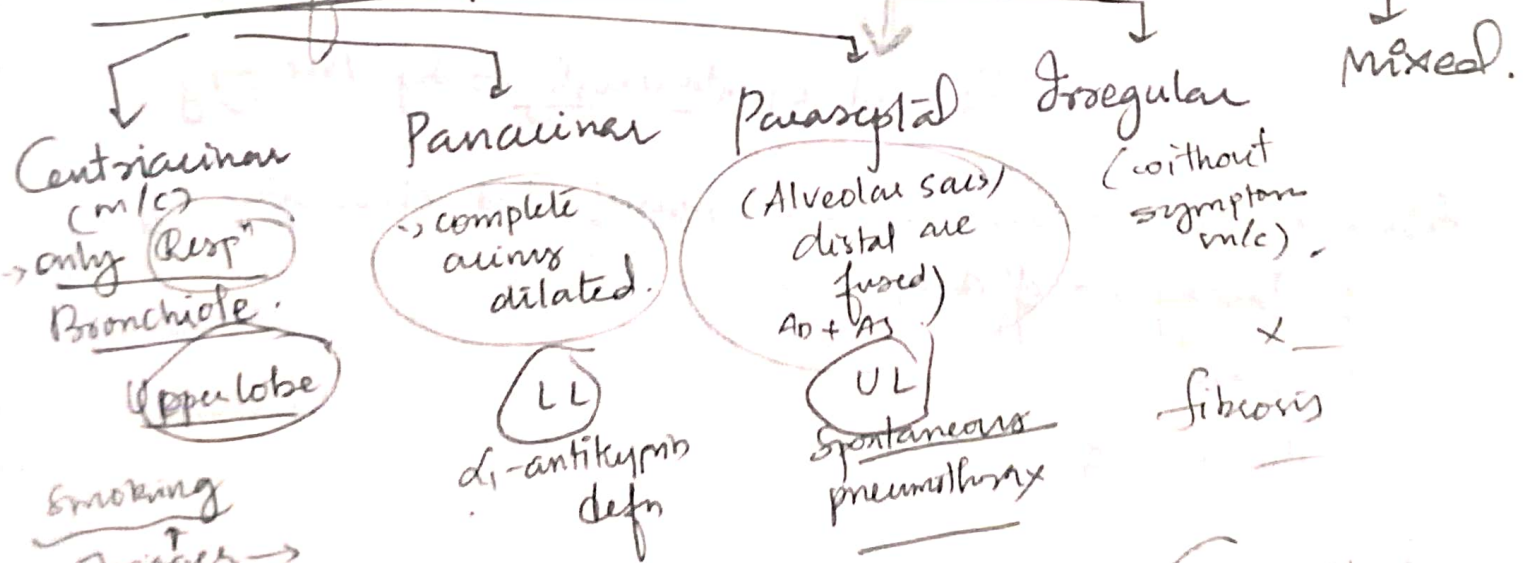 Centriacinar
(m/c)
→ only Respⁿ
Bronchiole.
Upper lobe
Smoking
↑
→
Panacinar
→ complete
acinus
dilated.
LL
α₁-antitrypsin
defn
Paraseptal
(Alveolar sacs)
distal are
fused)
AD + AS
UL
Spontaneous
pneumothorax
Irregular
(without
symptom
m/c).
x
fibrosis
Mixed.